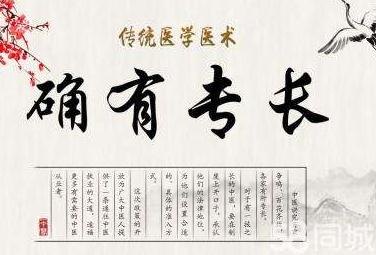 传统医学医术
确有专长
中医讲究
争鸣，百花齐
各家有所专长。
对于有一技之
长的中医，要在制
度上开口子，承认
他们的法律地位，
为他们设置合适
的、具体的准入方
式。
这次政策的开
放为广大中医人提
供了一条通往中医
执业的大道，造福
更多有需要的中医
从业者。
58同城